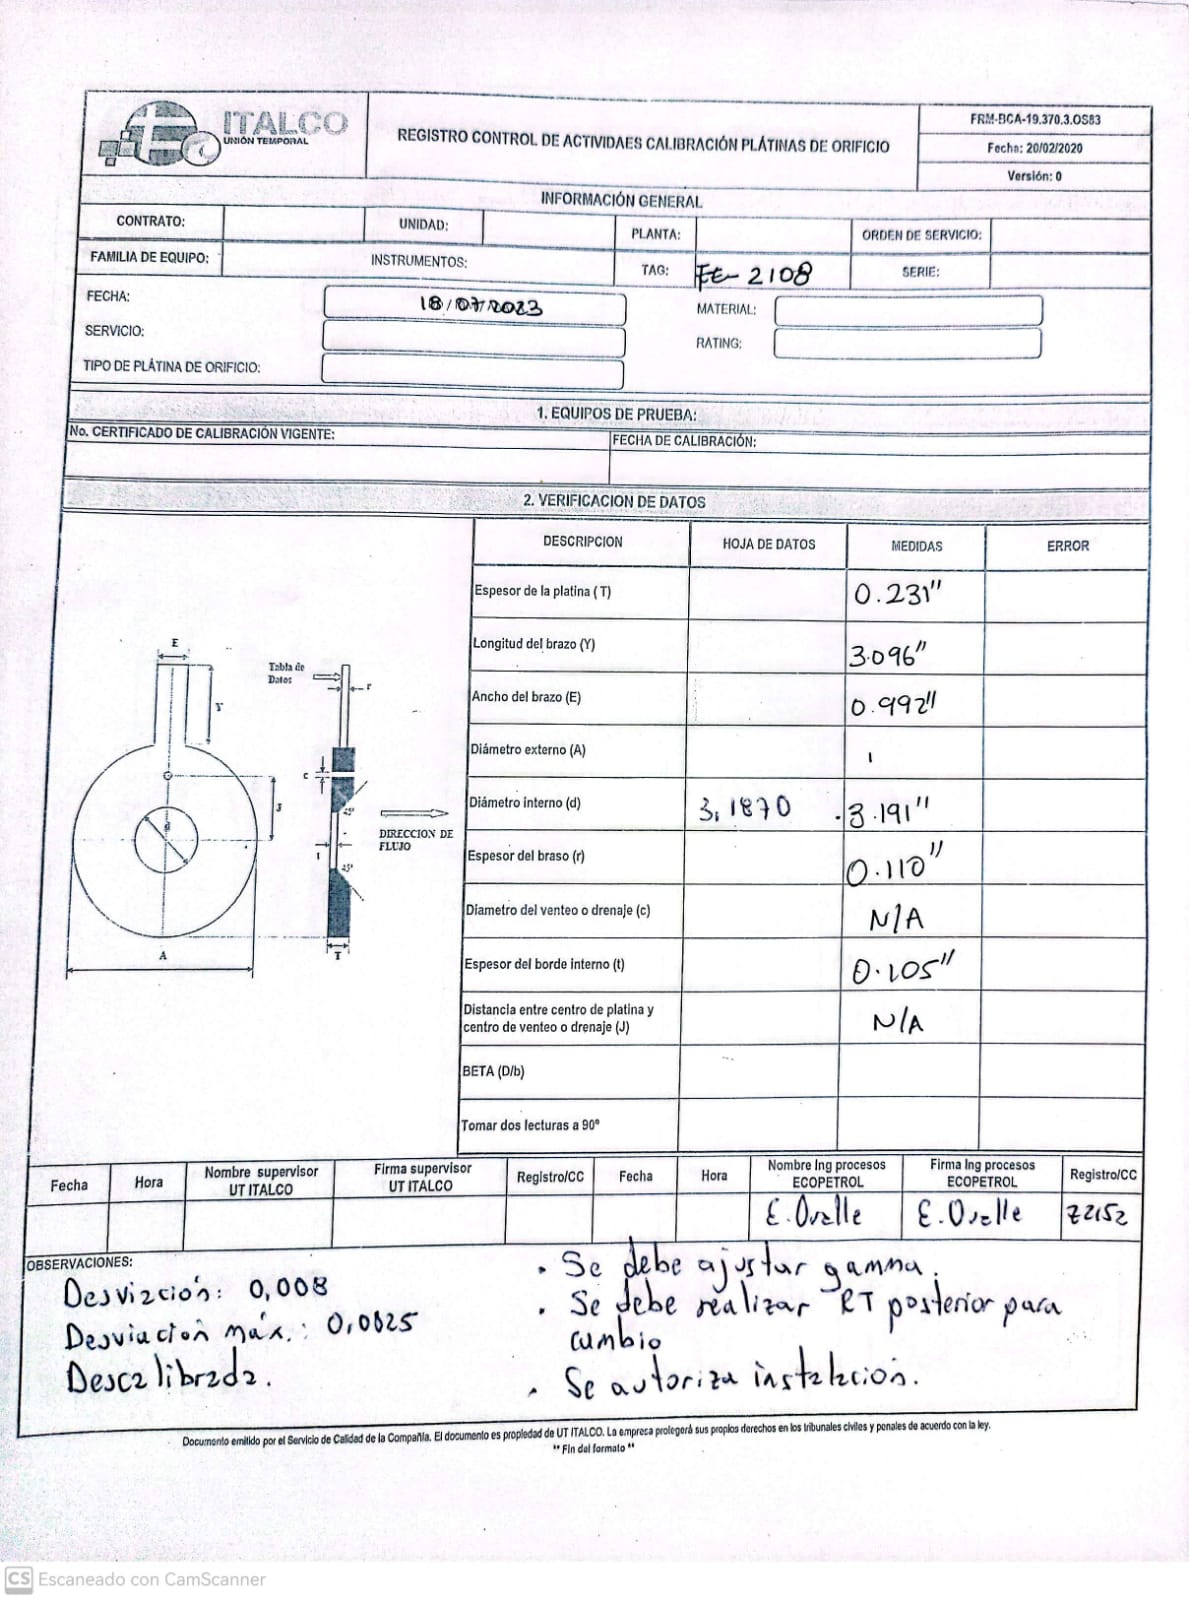 ITALCO
UNIÓN TEMPORAL
REGISTRO CONTROL DE ACTIVIDAES CALIBRACIÓN PLÁTINAS DE ORIFICIO
FRM-BCA-19.370.3.OS83
Fecha: 20/02/2020
Versión: 0
INFORMACIÓN GENERAL
CONTRATO: UNIDAD: PLANTA: ORDEN DE SERVICIO:
FAMILIA DE EQUIPO: INSTRUMENTOS: TAG: FE-2108 SERIE:
FECHA: 18/07/2023 MATERIAL:
SERVICIO: RATING:
TIPO DE PLÁTINA DE ORIFICIO:
1. EQUIPOS DE PRUEBA:
No. CERTIFICADO DE CALIBRACIÓN VIGENTE: FECHA DE CALIBRACIÓN:
2. VERIFICACION DE DATOS
DESCRIPCION HOJA DE DATOS MEDIDAS ERROR
Espesor de la platina (T) 0.231"
Longitud del brazo (Y) 3.096"
Ancho del brazo (E) 0.992"
Diámetro externo (A)
Diámetro interno (d) 3,1870 3.191"
Espesor del braso (r) 0.110"
Diametro del venteo o drenaje (c) N/A
Espesor del borde interno (t) 0.105"
Distancia entre centro de platina y
centro de venteo o drenaje (J) N/A
BETA (D/b)
Tomar dos lecturas a 90º
E
Y
Tabla de
Datos
r
c
J
d
45º
DIRECCION DE
FLUJO
t
45º
A
T
Fecha Hora Nombre supervisor UT ITALCO Firma supervisor UT ITALCO Registro/CC Fecha Hora Nombre Ing procesos ECOPETROL Firma Ing procesos ECOPETROL Registro/CC
E. Ovalle E. Ovalle 72152
OBSERVACIONES:
Desviación: 0,008
Desviación máx.: 0,0025
Descalibrada.
• Se debe ajustar gamma.
• Se debe realizar RT posterior para
cambio
• Se autoriza instalación.
Documento emitido por el Servicio de Calidad de la Compañía. El documento es propiedad de UT ITALCO. La empresa protegerá sus propios derechos en los tribunales civiles y penales de acuerdo con la ley.
** Fin del formato **
CS Escaneado con CamScanner